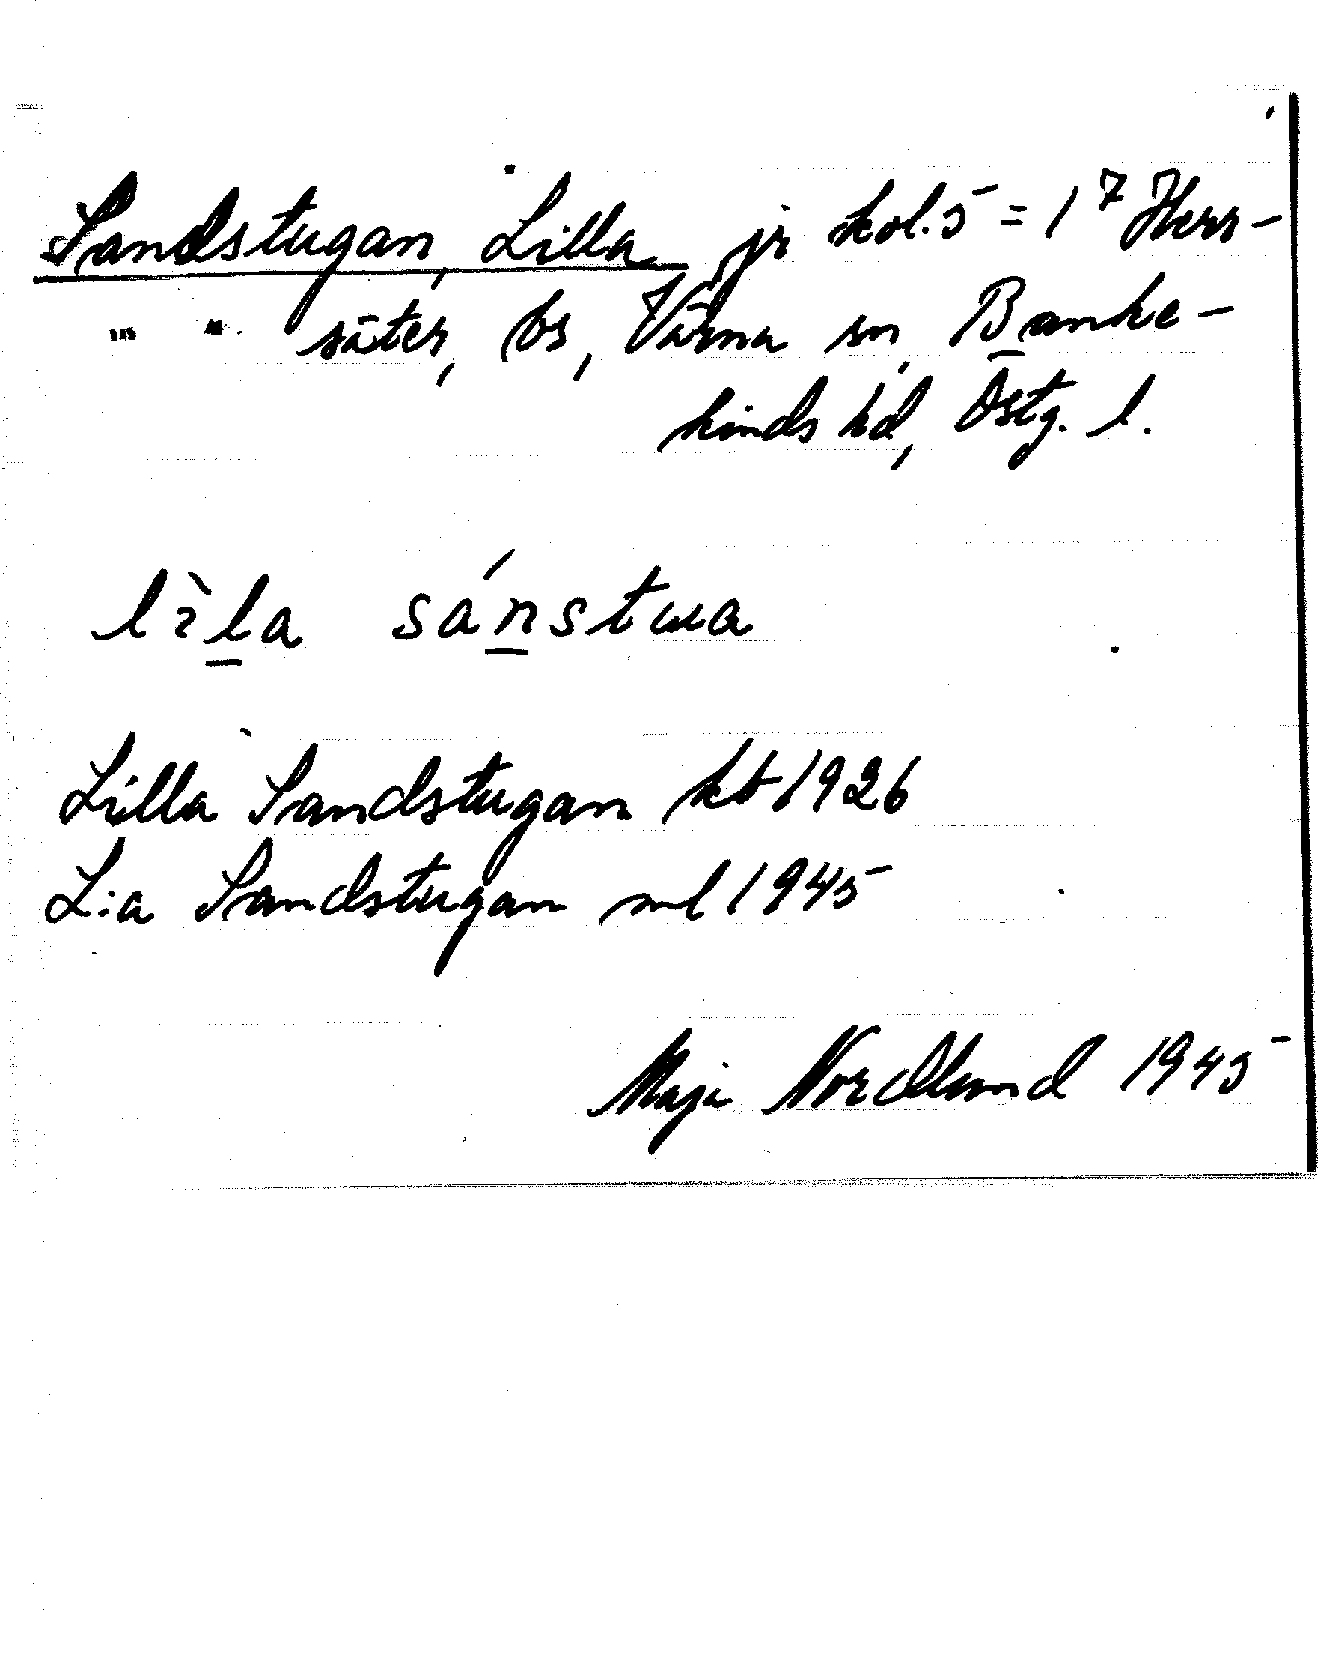 Sandstugan, Lilla jr kol. 5 = 1⁷ Herr-
" " säter, bs, Värna sn, Banke-
kinds hd, Östg. l.
lìla sánstua
Lilla Sandstugan kb 1926
L:a Sandstugan ml 1945
Maja Nordlund 1945